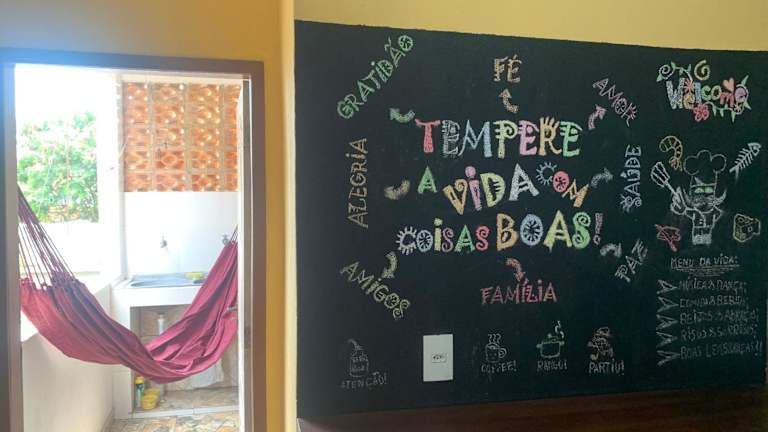 GRATIDÃO
FÉ
AMOR
Welcome
TEMPERE
A VIDA COM
COISAS BOAS!
ALEGRIA
SAÚDE
AMIGOS
PAZ
FAMÍLIA
MENU DA VIDA:
MÚSICA & DANÇA;
COMIDA & BEBIDA;
BEIJOS & ABRAÇOS;
RISOS & SORRISOS;
BOAS LEMBRANÇAS!!
ATENÇÃO!
COFFEE!
RANGU!
PARTIU!